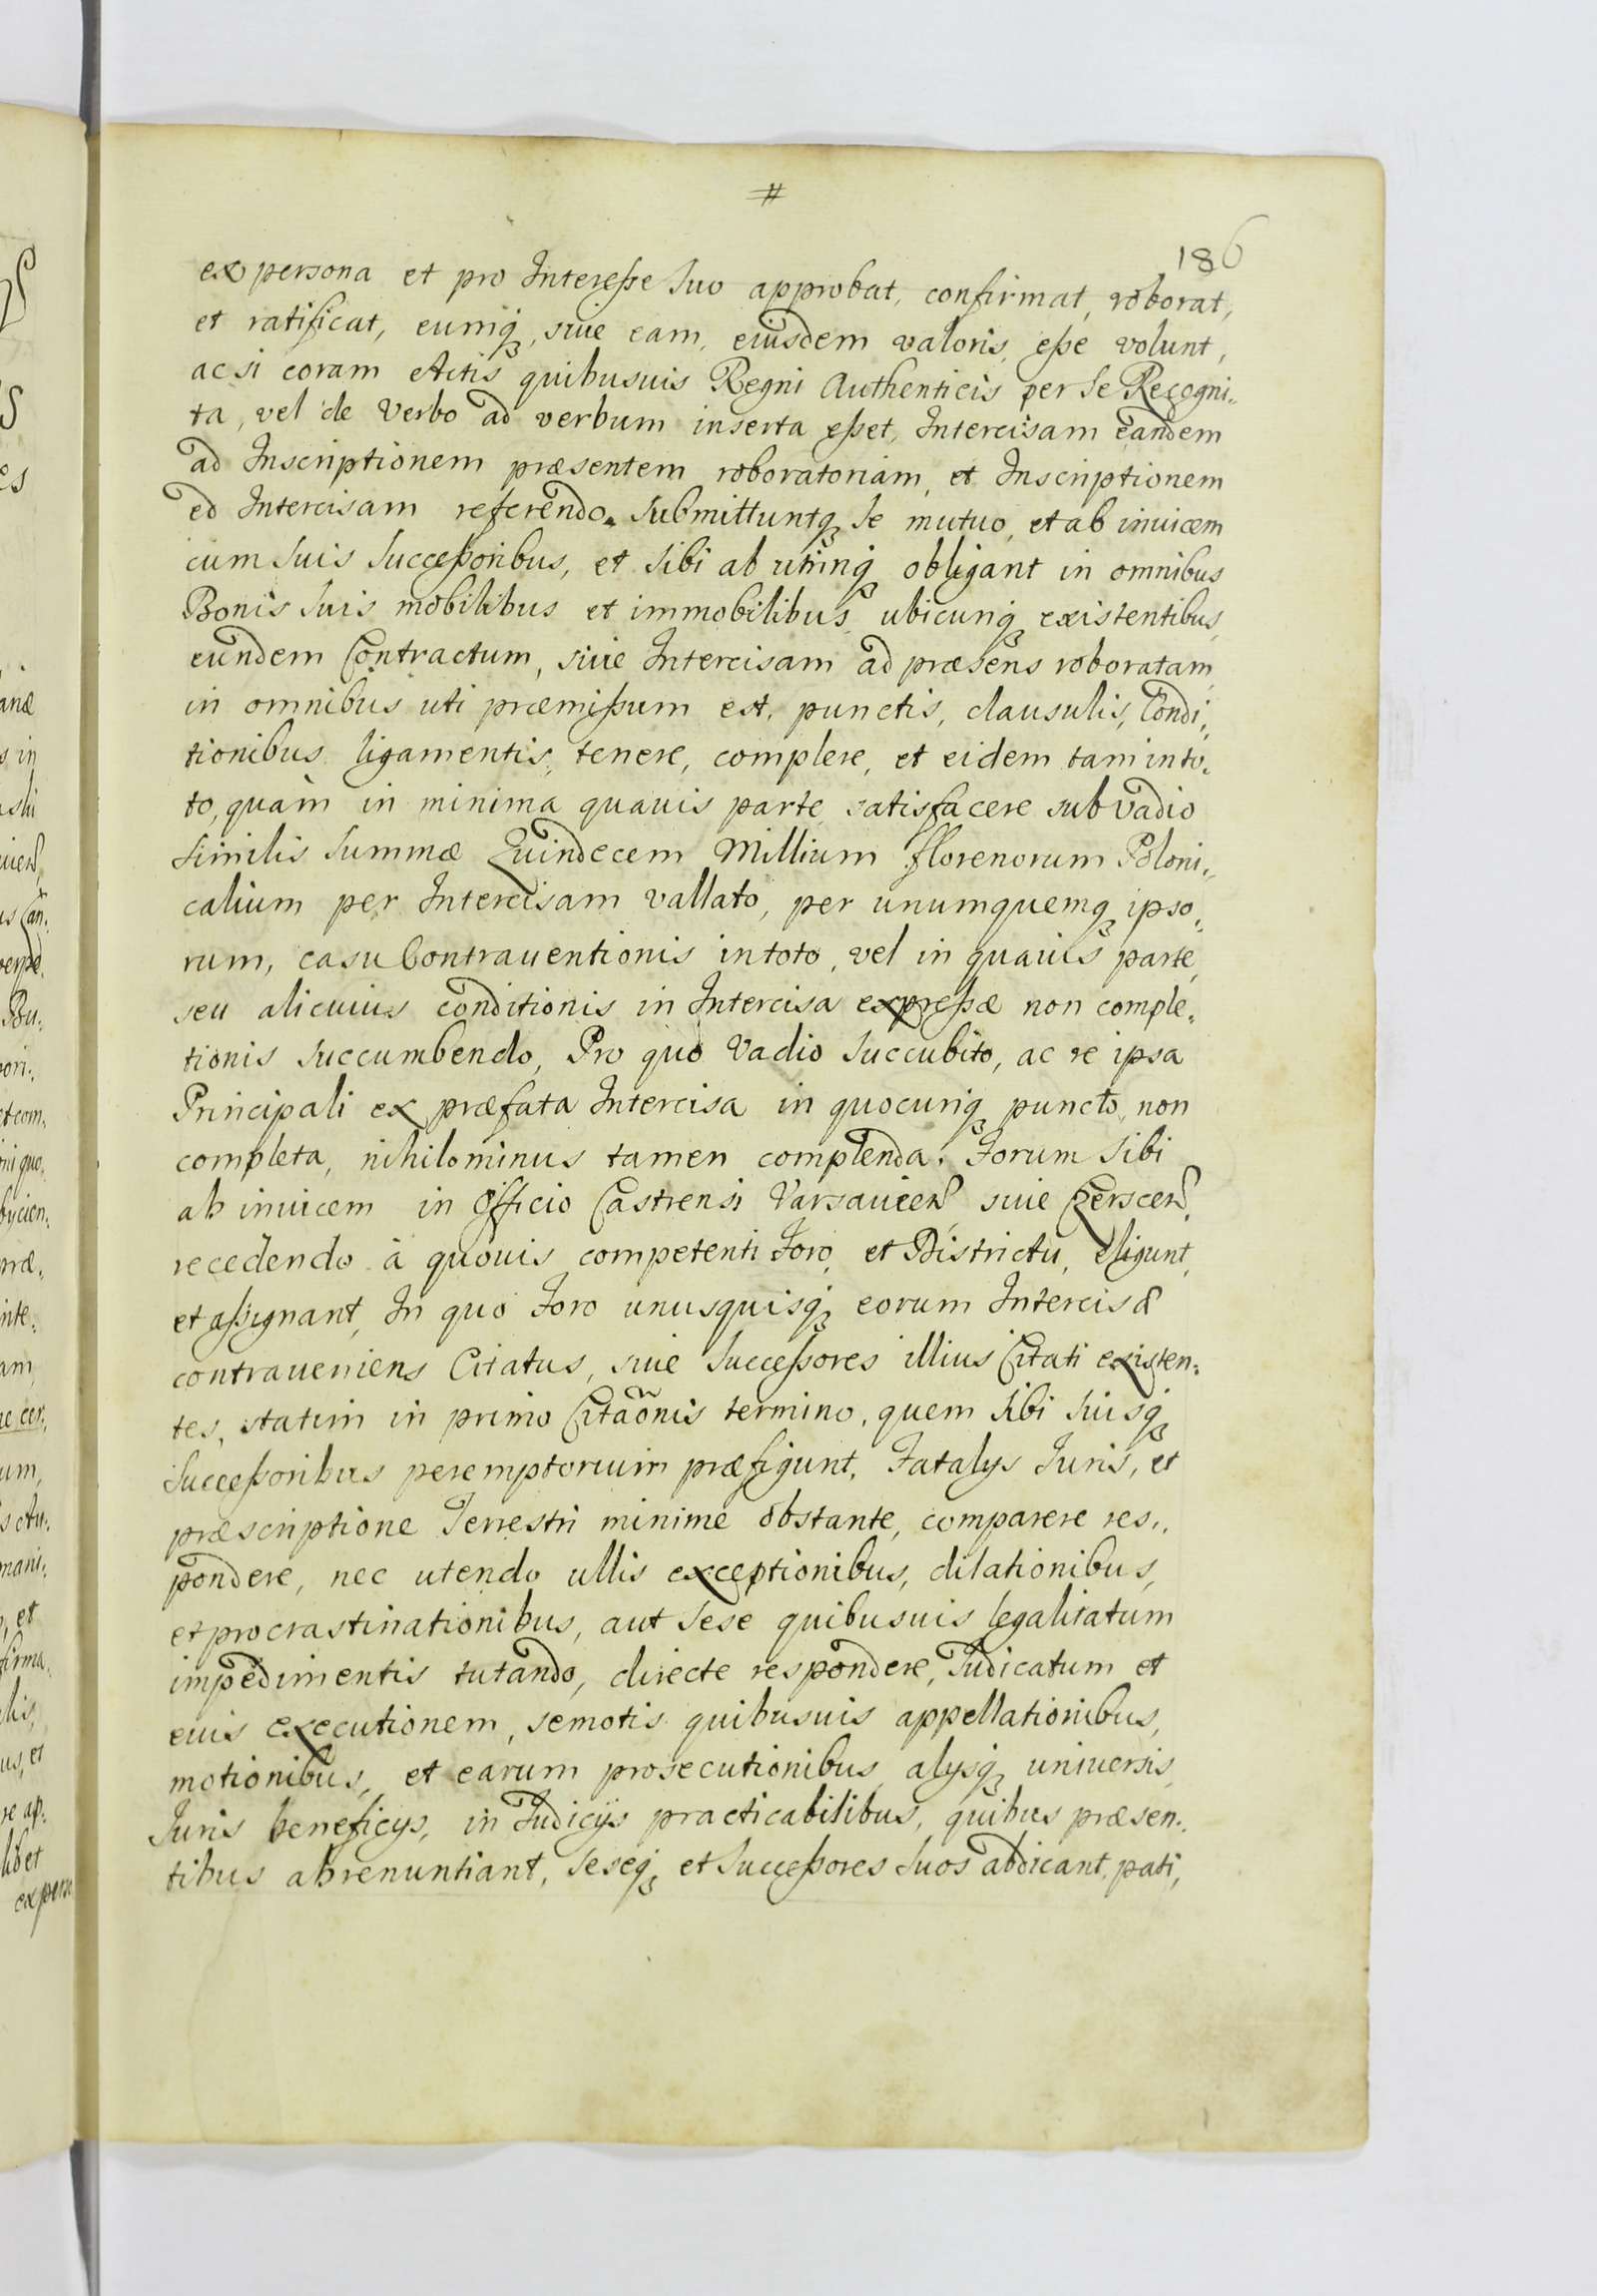 #
186
ex persona et pro Interesse suo approbat, confirmat, roborat,
et ratificat, eumq3, siue eam, eiusdem valoris, esse volunt,
ac si coram Actis quibusuis Regni Authenticis per se Recogni„
ta, vel de Verbo ad verbum inserta esset, Intercisam eandem
ad Inscriptionem præsentem roboratoriam, et Inscriptionem
ed Intercisam referendo. Submittuntq3 se mutuo, et ab inuicem
cum suis Successoribus, et sibi ab utrinq3 obligant in omnibus
Bonis suis mobilibus et immobilibus ubicunq3 existentibus,
eundem Contractum, siue Intercisam ad præsens roboratam,
in omnibus uti præmissum est, punctis, clausulis, Condi„
tionibus ligamentis, tenere, complere, et eidem tam in to„
to, quàm in minima quauis parte satisfacere sub vadio
similis Summæ Quindecem Millium florenorum Poloni„
calium per Intercisam vallato, per unumquemq3 ipso„
rum, casu Contrauentionis in toto, vel in quauis parte,
seu alicuius conditionis in Intercisa expressæ non comple„
tionis succumbendo, Pro quo Vadio succubito, ac re ipsa
Principali ex præfata Intercisa in quocunq3 puncto, non
completa, nihilominus tamen complenda. Forum sibi
ab inuicem in Officio Castrensi Varsauien siue Czerscen.
recedendo à quouis competenti Foro, et Districtu, eligunt,
et assignant, In quo Foro unusquisq3 eorum Intercisæ
contraueniens Citatus, siue Successores illius Citati existen„
tes, statim in primo Citaõnis termino, quem sibi suisq3
Successoribus peremptorium præfigunt, Fatalys Iuris, et
præscriptione Terrestri minime obstante, comparere res„
pondere, nec utendo ullis exceptionibus, dilationibus,
et procrastinationibus, aut sese quibusuis legalitatum
impedimentis tutando, directe respondere, Iudicatum et
euis executionem, semotis quibusuis appellationibus,
motionibus, et earum prosecutionibus, alysq3 uniuersis
Iuris beneficys, in Iudicijs practicabilibus, quibus præsen„
tibus abrenuntiant, seseq3 et Successores suos abdicant, pati,